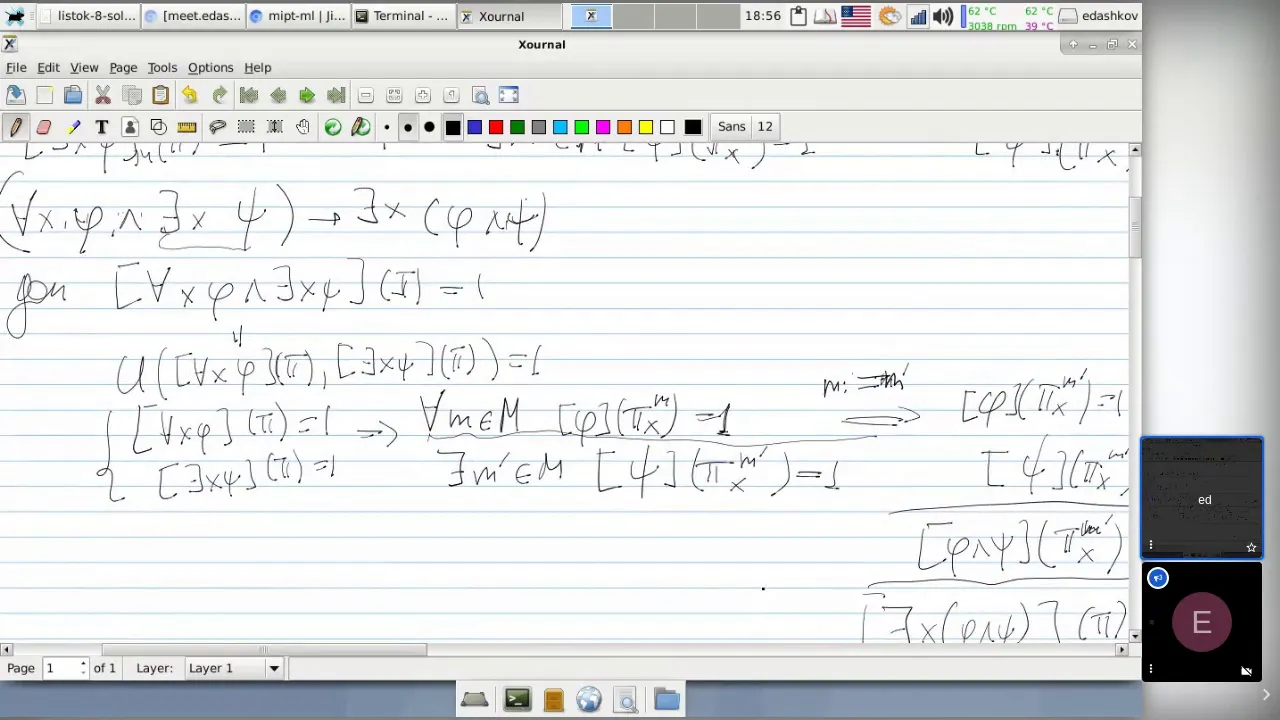 listok-8-sol...
[meet.edas...
mipt-ml | Ji...
Terminal - ...
Xournal
18:56
62 °C
3038 rpm
62 °C
39 °C
edashkov
Xournal
File Edit View Page Tools Options Help
Sans 12
(∀x φ ∧ ∃x ψ) → ∃x (φ ∧ ψ)
[∀x φ ∧ ∃x ψ](π) = 1
([∀x φ](π), [∃x ψ](π)) = 1
[∀x φ](π) = 1 ⇒ ∀m∈M [φ](π_x^m) = 1
m := m'
⇒ [φ](π_x^m') = 1
[∃x ψ](π) = 1 ∃m'∈M [ψ](π_x^m') = 1 [ψ](π_x^m'
[φ∧ψ](π_x^m')
[∃x(φ∧ψ)](π)
Page 1 of 1 Layer: Layer 1
ed
E